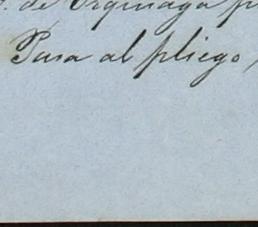 de Orquiaga
Pasa al pliego